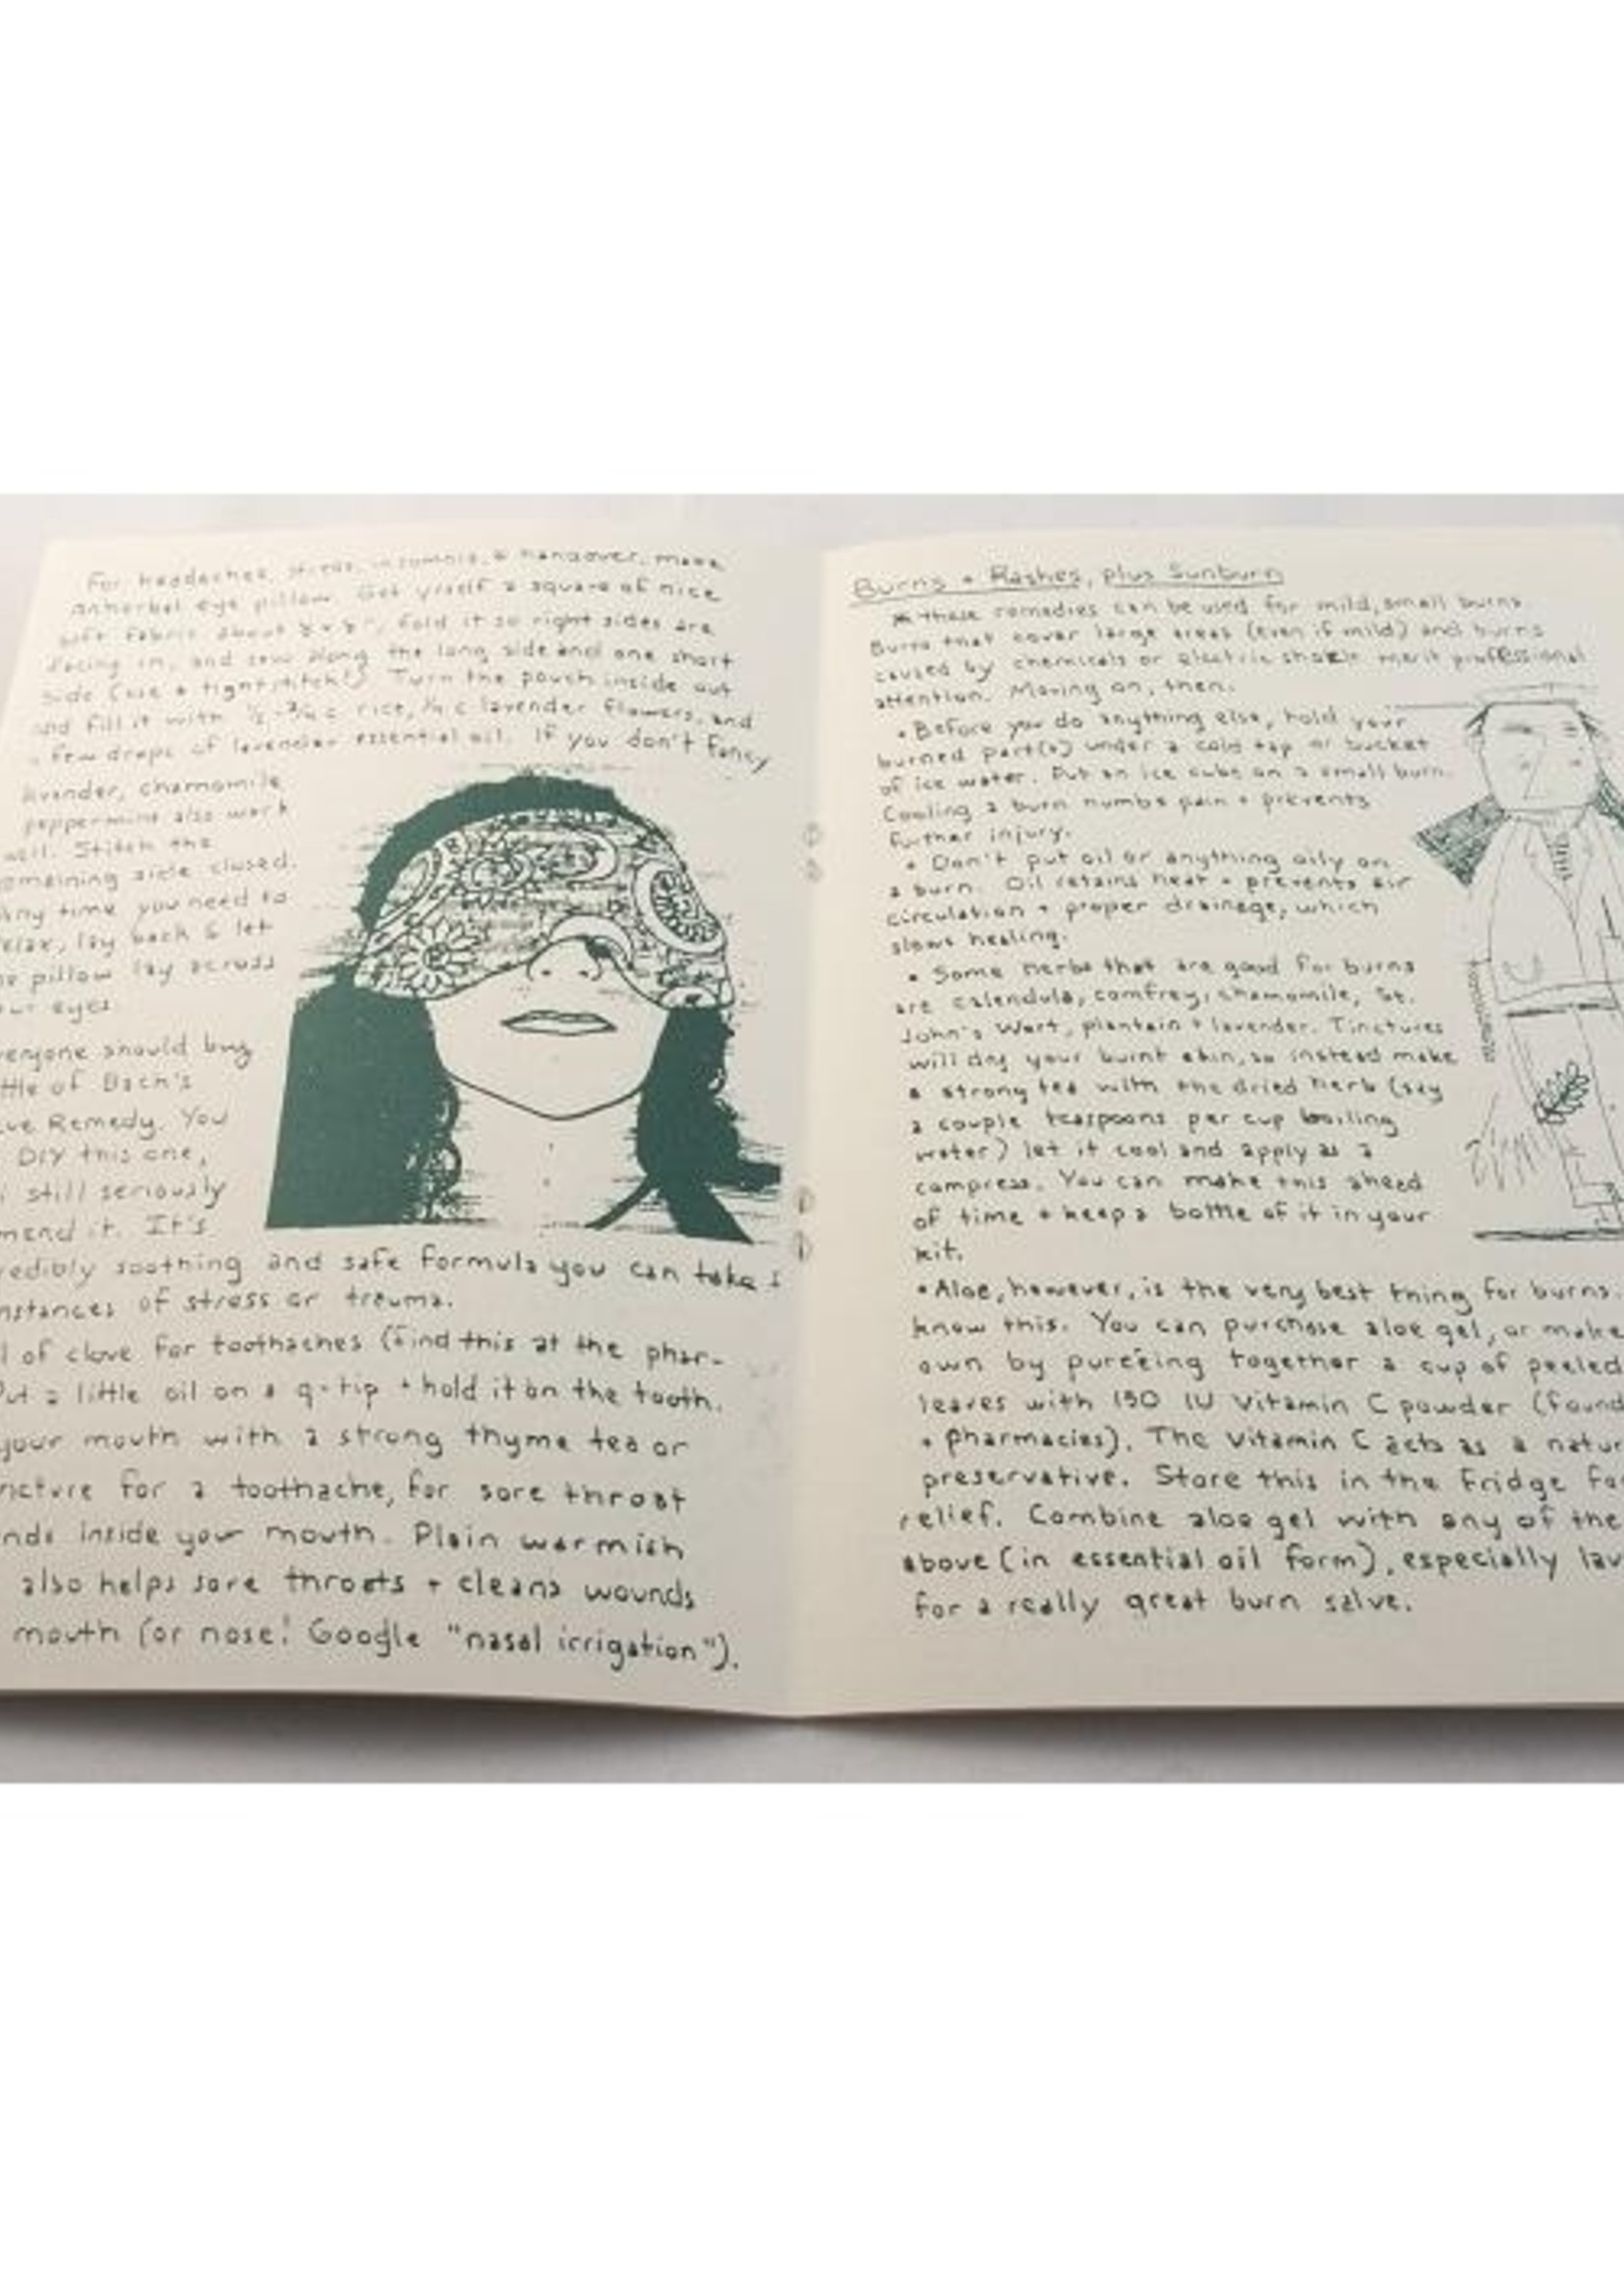 For headaches, stress, insomnia, a hangover, make
an herbal eye pillow. Get yrself a square of nice
soft fabric about 8" x 8", fold it so right sides are
facing in, and sew along the long side and one short
side (use a tight stitch!) Turn the pouch inside out
and fill it with ½-¾ c rice, ¼ c lavender flowers, and
a few drops of lavender essential oil. If you don't fancy
lavender, chamomile
peppermint also work
well. Stitch the
remaining side closed.
Any time you need to
relax, lay back & let
pillow lay across
your eyes.
everyone should buy
ttle of Bach's
cue Remedy. You
DIY this one,
i still seriously
mend it. It's
redibly soothing and safe formula you can take i
nstances of stress or trauma.
l of clove for toothaches (find this at the phar-
Put a little oil on a q-tip + hold it on the tooth.
your mouth with a strong thyme tea or
ncture for a toothache, for sore throat
nds inside your mouth. Plain warmish
also helps sore throats + cleans wounds
mouth (or nose! Google "nasal irrigation").
Burns + Rashes, plus Sunburn
* these remedies can be used for mild, small burns.
Burns that cover large areas (even if mild) and burns
caused by chemicals or electric shock merit professional
attention. Moving on, then.
• Before you do anything else, hold your
burned part(s) under a cold tap or bucket
of ice water. Put an ice cube on a small burn.
Cooling a burn numbs pain + prevents
further injury.
• Don't put oil or anything oily on
a burn. Oil retains heat + prevents air
circulation + proper drainage, which
slows healing.
• Some herbs that are good for burns
are calendula, comfrey, chamomile, St.
John's Wort, plantain + lavender. Tinctures
will dry your burnt skin, so instead make
a strong tea with the dried herb (say
a couple teaspoons per cup boiling
water) let it cool and apply as a
compress. You can make this ahead
of time + keep a bottle of it in your
kit.
• Aloe, however, is the very best thing for burns.
know this. You can purchase aloe gel, or make
own by puréeing together a cup of peeled
leaves with 150 IU Vitamin C powder (found
+ pharmacies). The Vitamin C acts as a natur
preservative. Store this in the fridge for
relief. Combine aloe gel with any of the
above (in essential oil form), especially lav
for a really great burn salve.